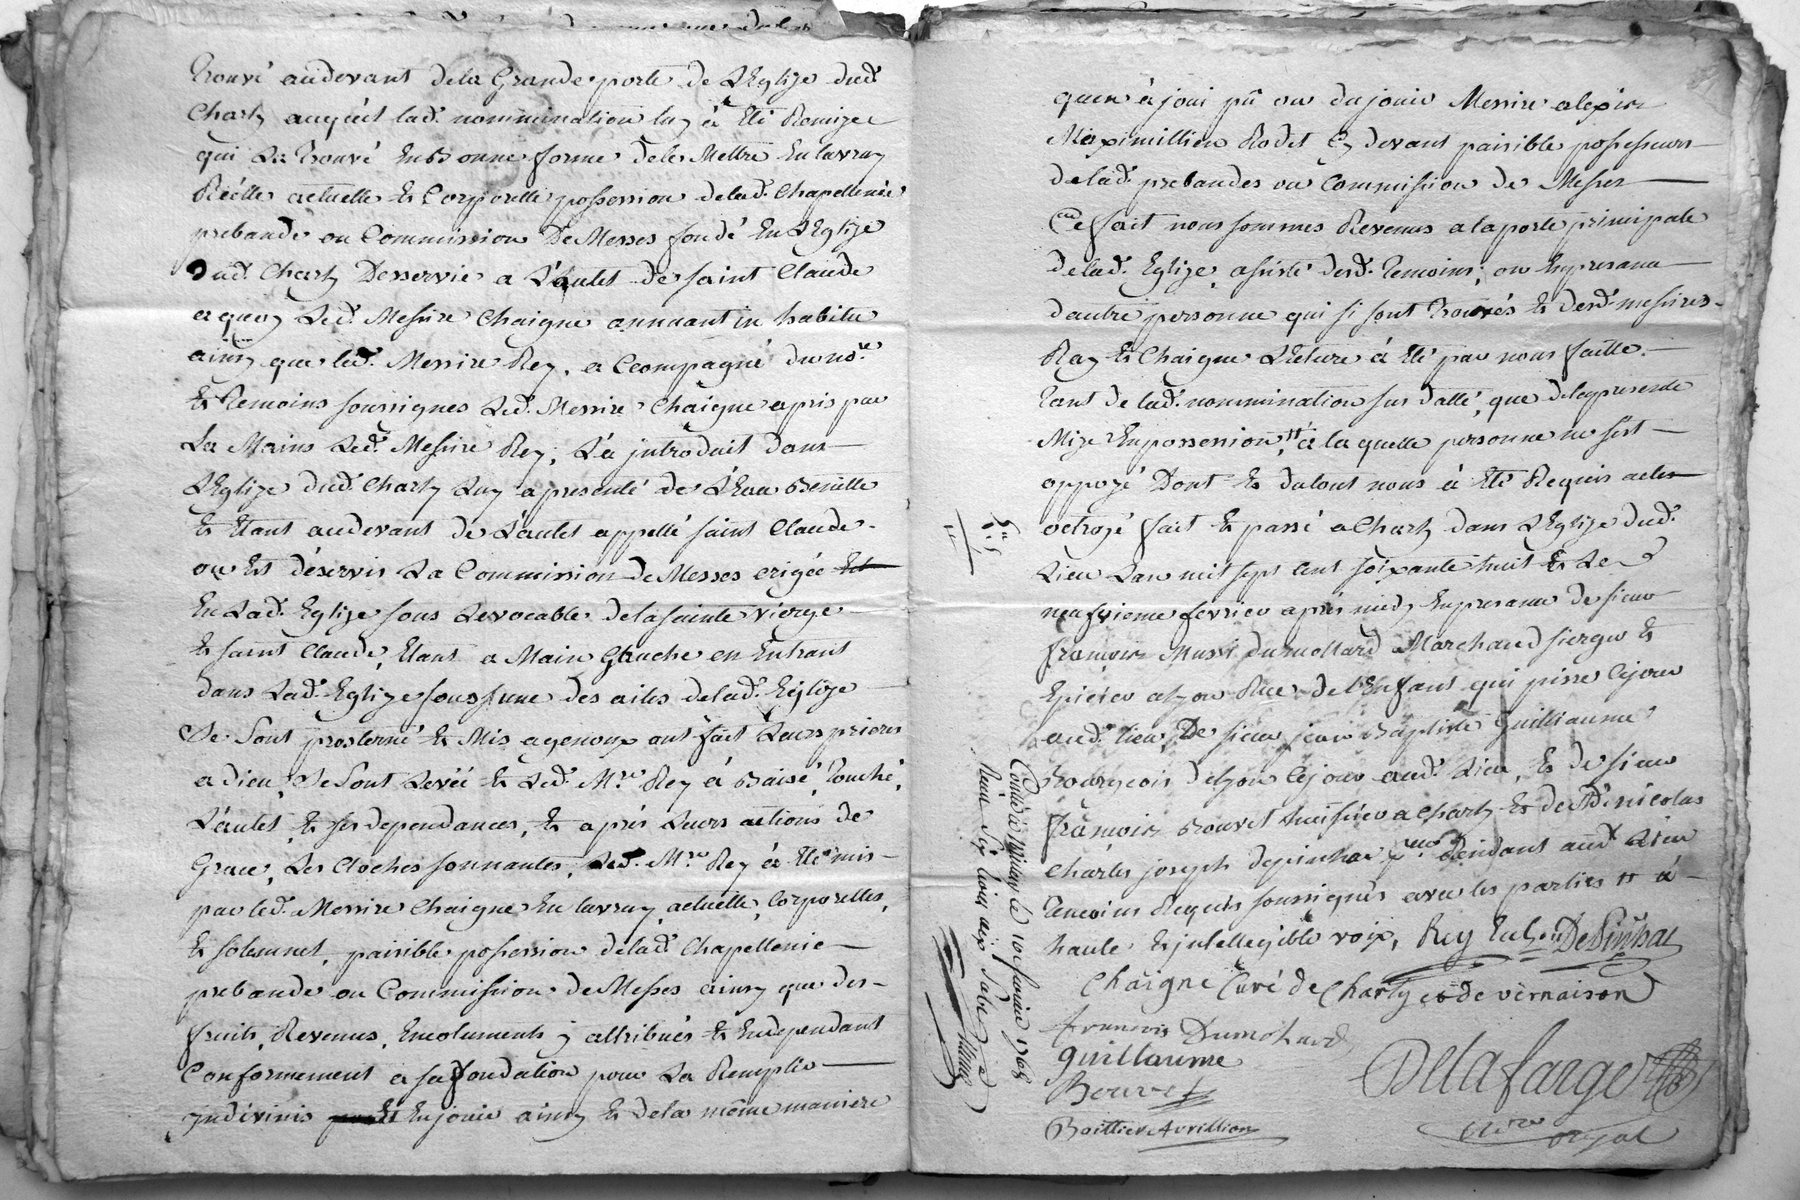 trouvé audevant dela Grande porte de L'Eglize dud.
Charly auquel lad. nommination luy à Eté Remize
qui La trouvé En Bonne forme de le Mettre En la vray
Réélle actuelle Et Corporelle possession delad. Chapellenie
prebande ou Commission De Messes fondé En L'Eglize
dud. Charly Desservie a L'autel de saint Claude
a quoy Led. Messire Chaigne annuant in habitu
ainsy que led. Messire Rey, accompagné du no.re
Et temoins soussignes Led. Messire Chaigne a pris par
La Mains Led. Messire Rey, L'a jntroduit dans
L'Eglize dud. Charly Luy a presenté de L'Eau Benitte
Et Etant audevant de L'autel appellé saint Claude
ou Est déservis La Commission de Messes erigée
En Lad. Eglize sous Levocable dela sainte vierge
Et saint Claude, Etant a Main Gauche en Entrant
dans Lad. Eglize sous June des ailes delad. Eglize
Se Sont prosterné Et Mis agenoux ont fait Leurs prieres
a dieu, Se Sont Levéé Et Led. M.re Rey à Baisé, touché,
L'autel Et ses dependances, Et aprés Leurs actions de
Grace, Les Cloches sonnantes, Led. M.re Rey à Eté mis
par led. Messire Chaigne En la vray, actuelle, Corporelles,
Et solemnel, paisible possession delad. Chapellenie
prebande ou Commission de Messes ainsy que des
fruits, Revenus, Emoluments y attribués Et Endependant
Conformement a sa fondation pour La Remplir
jndivinis Et En jouir ainsy Et dela même maniere
quen à joui pû ou du jouir Messire alexis
Maximillien Rodet Cy devant paisible possesseurs
delad. prebandes ou Commission de Messes
Ce fait nous sommes Revenus a la porte principale
delad. Eglize, asisté desd. temoins, ou En presance
dautre personne qui si sont trouvés Et desd. messires
Rey Et Chaigne Lecture à Eté par nous faitte
tant de lad. nommination sus datté, que dela presente
Mize En possession, à la quelle personne ne sest
oppozé Dont Et dutout nous à Eté Requis acte
octroyé fait Et passé a Charly dans L'Eglize dud.
Lieu Lan mil sept cent soixante huit Et Le
neufvieme fevrier aprés midy En presance de sieur
françois dumottard Marchand Et
Epicier a Lyon Rue de l'Enfant qui pisse Cejour
aud. lieu, De sieur jean Baptiste Guilliaume
Bourgeois de Lyon Cejour aud. Lieu, Et de sieur
françois Bouvet huissier a Charly Et de S.r nicolas
Charles joseph depinhac Residant aud. Lieu
temoins Requis soussignés avec les parties a
haute Et jntellegible voix, Rey DePinhac
Chaigne Curé de Charly et de vernaison
francois Dumottard
guillaume
Bouvet
Delafarge
Boittier Avrillion
no.re royal
Controlé a le 10e fevrier 1768
Reçu Six livres dix Sols